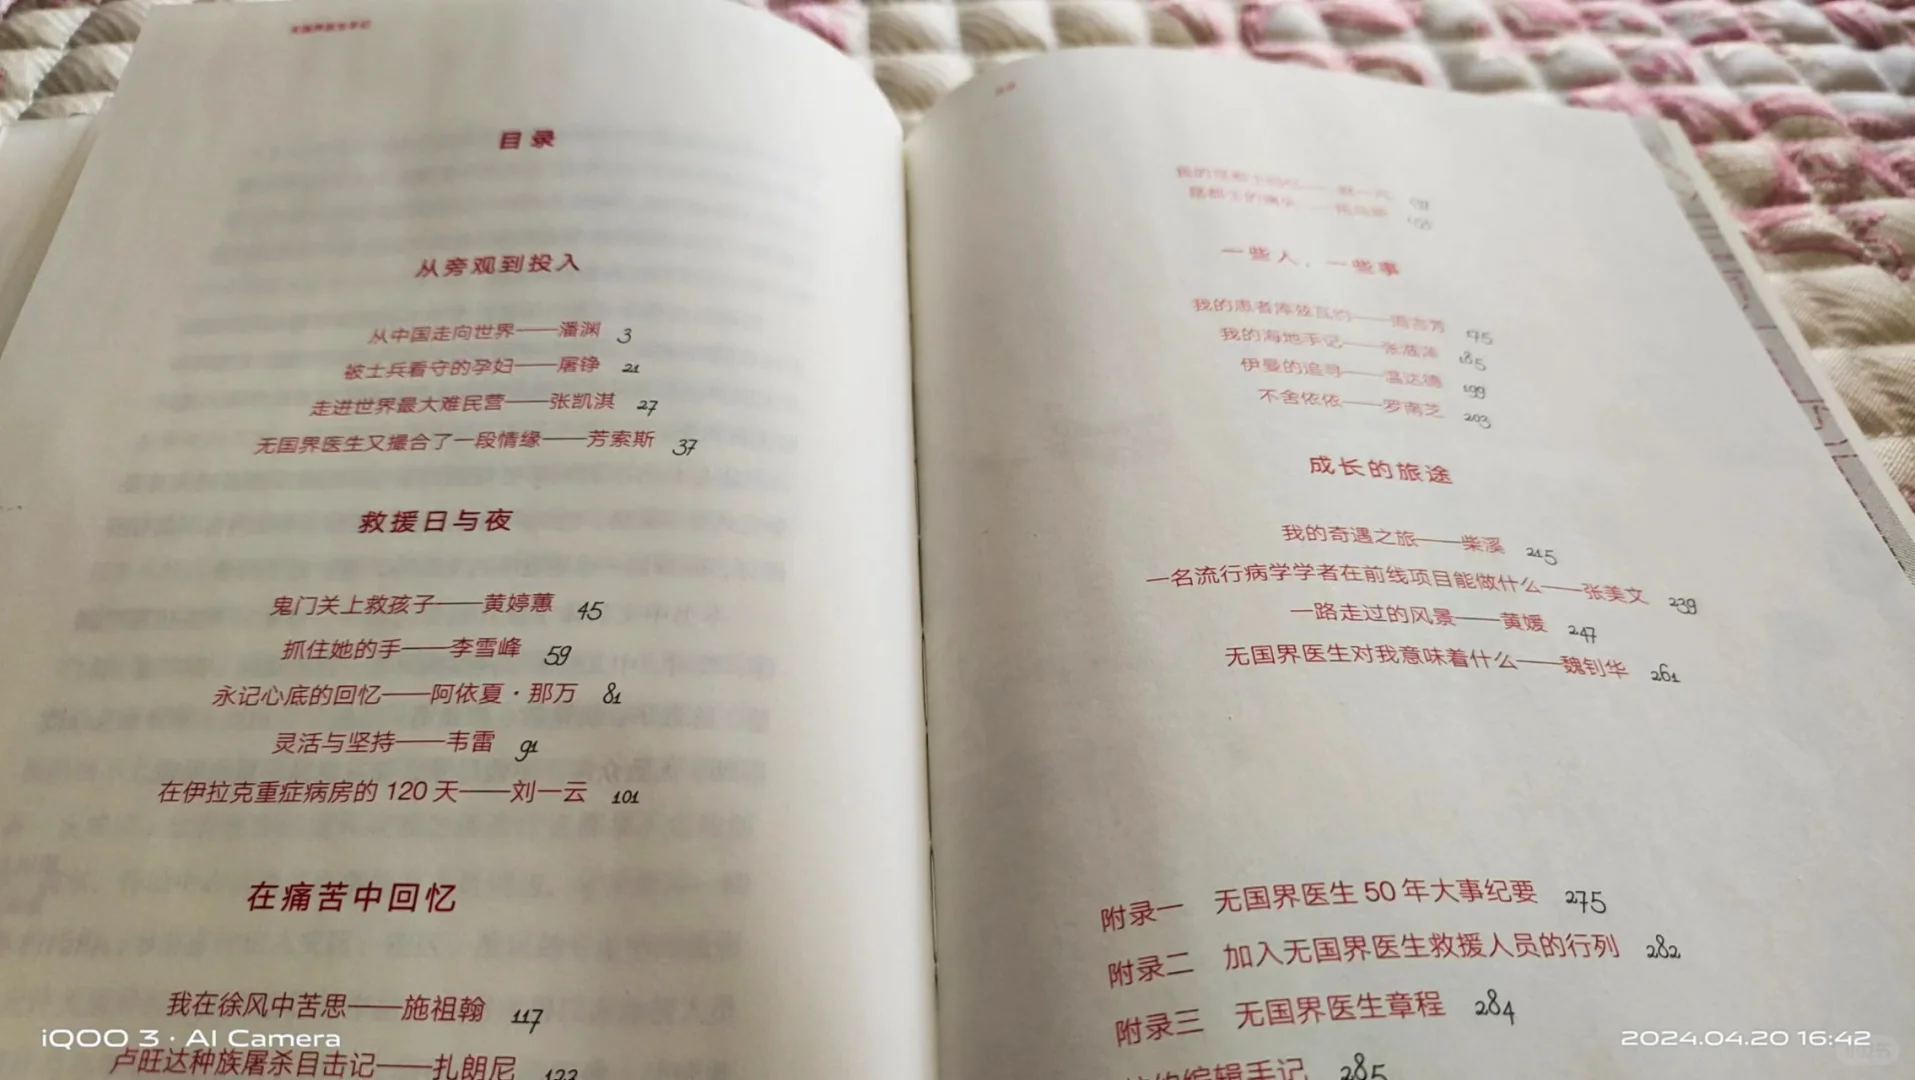 无国界医生手记
目录
从旁观到投入
从中国走向世界——潘渊 3
被士兵看守的孕妇——屠铮 21
走进世界最大难民营——张凯淇 27
无国界医生又撮合了一段情缘——芳索斯 37
救援日与夜
鬼门关上救孩子——黄婷蕙 45
抓住她的手——李雪峰 59
永记心底的回忆——阿依夏·那万 81
灵活与坚持——韦雷 91
在伊拉克重症病房的 120 天——刘一云 101
在痛苦中回忆
我在徐风中苦思——施祖翰 117
卢旺达种族屠杀目击记——扎朗尼
一些人，一些事
我的患者 175
我的海地手记 185
伊曼的追寻——温达德 199
不舍依依——罗南芝 203
成长的旅途
我的奇遇之旅——柴溪 215
一名流行病学学者在前线项目能做什么——张美文 239
一路走过的风景——黄媛 247
无国界医生对我意味着什么——魏钊华 261
附录一 无国界医生 50 年大事纪要 275
附录二 加入无国界医生救援人员的行列 282
附录三 无国界医生章程 284
编辑手记 285
iQOO 3 · AI Camera
2024.04.20 16:42